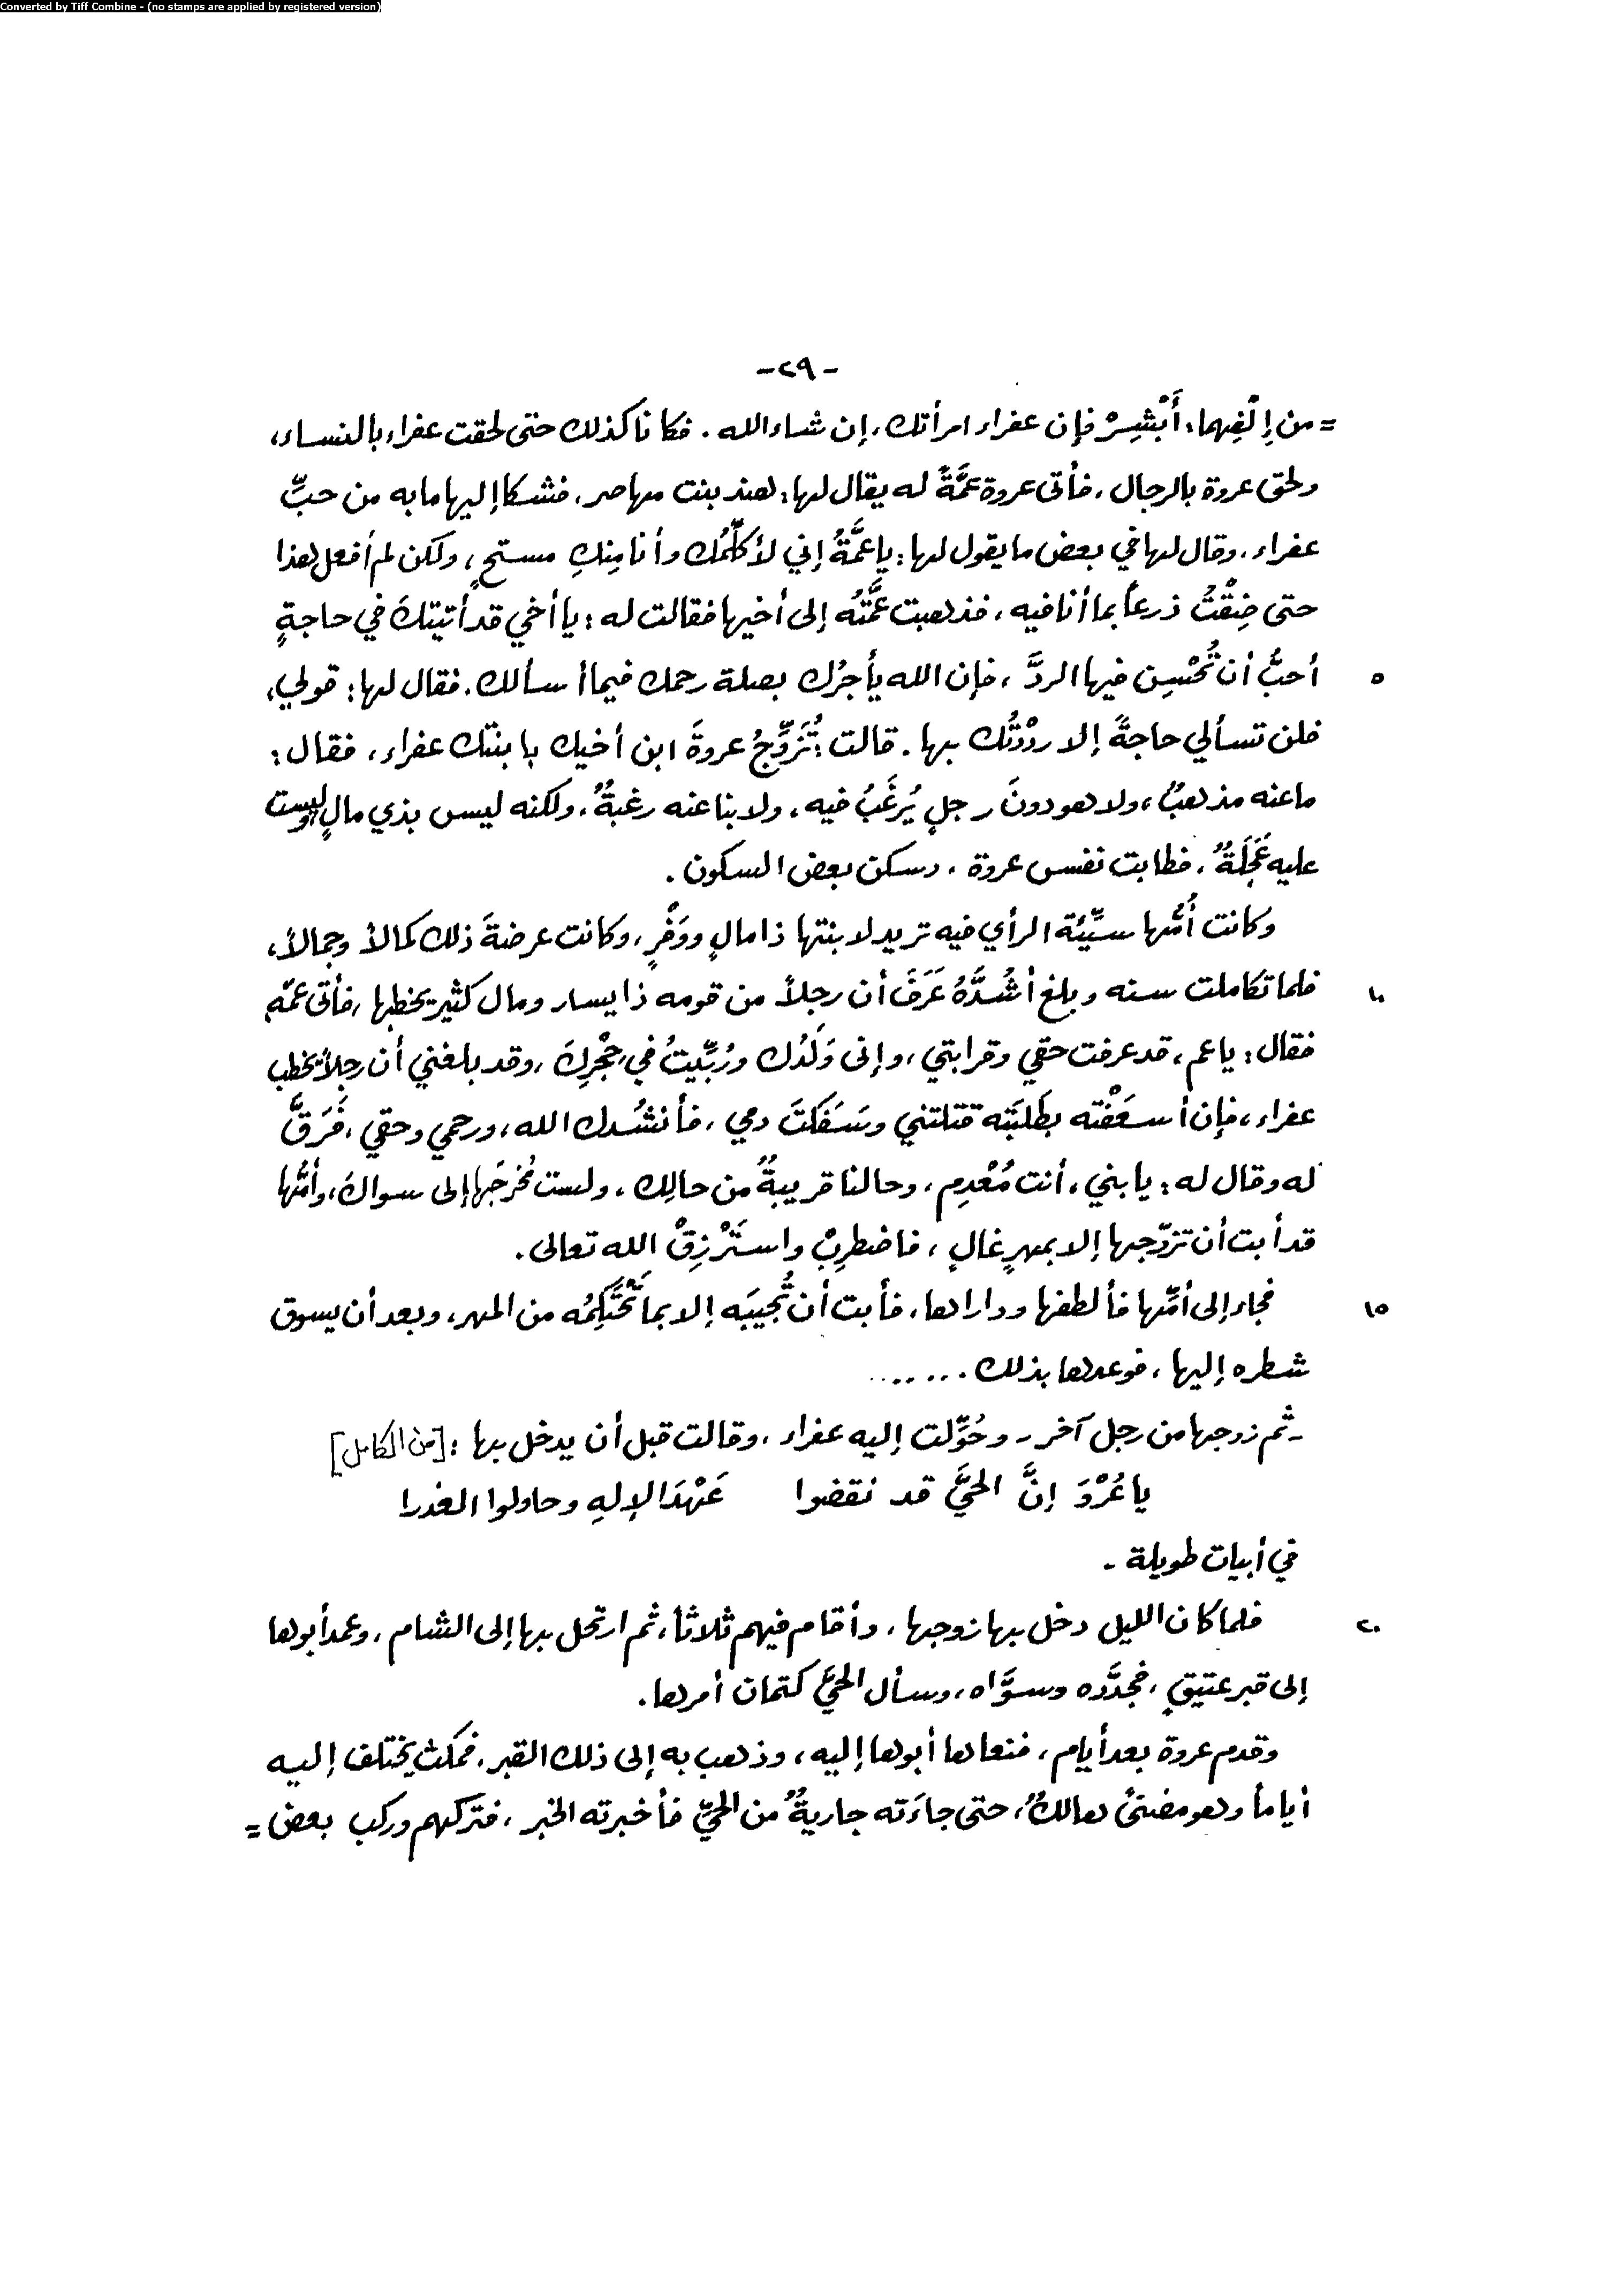 Converted by Tiff Combine - (no stamps are applied by registered version)
-٢٩-
= من إِلْفِهما، أَبْشِرْ فإن عفراء امرأتك، إن شاء الله. فكانا كذلك حتى لحقت عفراء بالنساء،
ولحق عروة بالرجال، فأتى عروة عمَّةً له يقال لها: هند بنت مهاصر، فشكا إليها ما به من حبِّ
عفراء، وقال لها في بعض ما يقول لها: يا عمَّةُ إني لأكلِّمُك وأنا مِنكِ مستحٍ، ولكن لم أفعل هذا
حتى ضِقْتُ ذرعاً بما أنا فيه، فذهبت عمَّتُه إلى أخيها فقالت له: يا أخي قد أتيتكَ في حاجةٍ
٥ أحبُّ أن تُحْسِن فيها الردَّ، فإن الله يأجرُك بصلة رحمك فيما أسألك. فقال لها: قولي،
فلن تسألي حاجةً إلا رددْتُك بها. قالت: تُزَوِّجُ عروةَ ابن أخيك بابنتك عفراء، فقال:
ما عنه مذهبٌ، ولا هو دونَ رجلٍ يُرغَبُ فيه، ولا بنا عنه رغبةٌ، ولكنه ليس بذي مالٍ وليست
عليه عَجَلَةٌ، فطابت نفس عروة، وسكن بعض السكون.
وكانت أمُّها سيِّئة الرأي فيه تريد لابنتها ذا مالٍ ووَفْرٍ، وكانت عرضةَ ذلك كمالاً وجمالاً،
١٠ فلما تكاملت سنه وبلغ أشُدَّهُ عَرَفَ أن رجلاً من قومه ذا يسار ومال كثير يخطبها، فأتى عمَّه
فقال: يا عم، قد عرفت حقي وقرابتي، وإنى وَلَدُك ورُبِّيتُ في حِجْرِكَ، وقد بلغني أن رجلاً يخطب
عفراء، فإن أسعَفْته بطَلَبَتِه قتلتني وسَفَكتَ دمي، فأنشُدك الله، ورحمي وحقي، فَرَقَّ
له وقال له: يا بني، أنت مُعْدِم، وحالنا قريبةٌ من حالِك، ولست مُخرجَها إلى سواكَ، وأمُّها
قد أبت أن تزوّجها إلا بمهرٍ غالٍ، فاضطرِبْ واستَرْزِقْ الله تعالى.
١٥ فجاء إلى أمِّها فألطفها وداراها، فأبت أن تُجيبَه إلا بما تَحْتَكِمُه من المهر، وبعد أن يسوق
شطره إليها، فوعدها بذلك.......
- ثم زوجها من رجل آخر - وحُوِّلت إليه عفراء، وقالت قبل أن يدخل بها: [من الكامل]
يا عُرْوَ إنَّ الحيَّ قد نقضوا عَهْدَ الإلهِ وحاولوا الغدرا
في أبيات طويلة -
٢٠ فلما كان الليل دخل بها زوجها، وأقام فيهم ثلاثاً، ثم ارتحل بها إلى الشام، وعمد أبوها
إلى قبر عتيقٍ، فجدَّده وسوَّاه، وسأل الحيَّ كتمان أمرها.
وقدم عروة بعد أيام، فنعاها أبوها إليه، وذهب به إلى ذلك القبر، فمكث يختلف إليه
أياماً وهو مضنىً هالكٌ، حتى جاءَته جاريةٌ من الحيِّ فأخبرته الخبر، فتركهم وركب بعض =